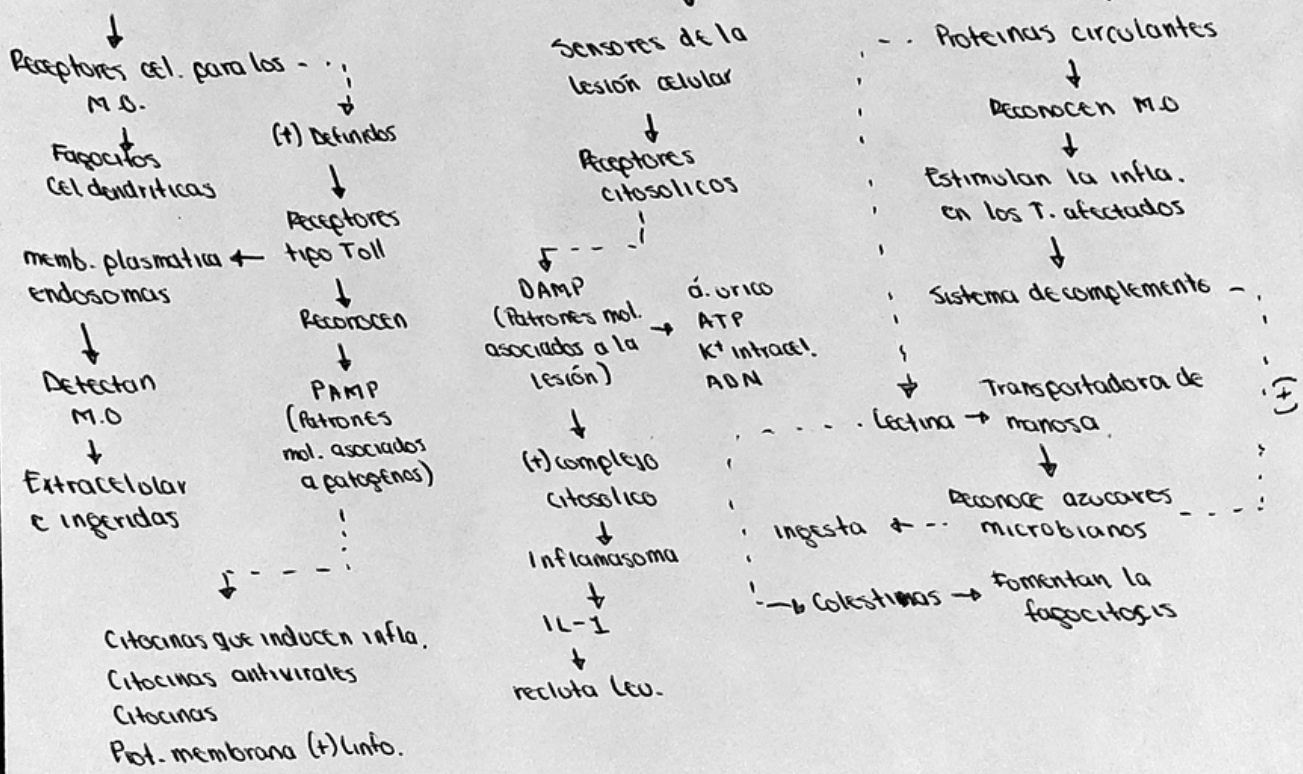 Receptores cel. para los
M.O.
Fagocitos
Cel dendriticas
(+) Definidos
Receptores
tipo Toll
memb. plasmatica
endosomas
Detectan
M.O
Extracelolar
e ingeridas
Reconocen
PAMP
(Patrones
mol. asociados
a patogenos)
Citocinas que inducen infla.
Citocinas antivirales
Citocinas
Prot. membrana (+) Linfo.
Sensores de la
lesión celular
Receptores
citosolicos
DAMP
(Patrones mol.
asociados a la
lesión)
á. urico
ATP
K+ intracel.
ADN
(+) complejo
citosolico
Inflamasoma
IL-1
recluta leu.
Proteinas circulantes
Reconocen M.O
Estimulan la infla.
en los T. afectados
Sistema de complemento
(+)
Lectina
Transportadora de
manosa
Reconoce azucares
microbianos
ingesta
Colestinas
Fomentan la
fagocitosis